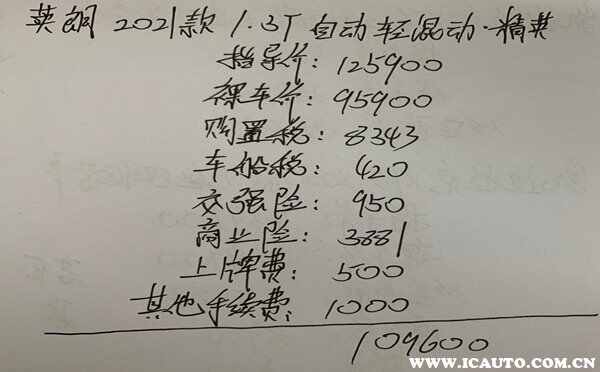 英朗 2021款 1.3T 自动轻混动·精英
指导价: 125900
裸车价: 95900
购置税: 8343
车船税: 420
交强险: 950
商业险: 3881
上牌费: 500
其他手续费: 1000
109600
WWW.ICAUTO.COM.CN